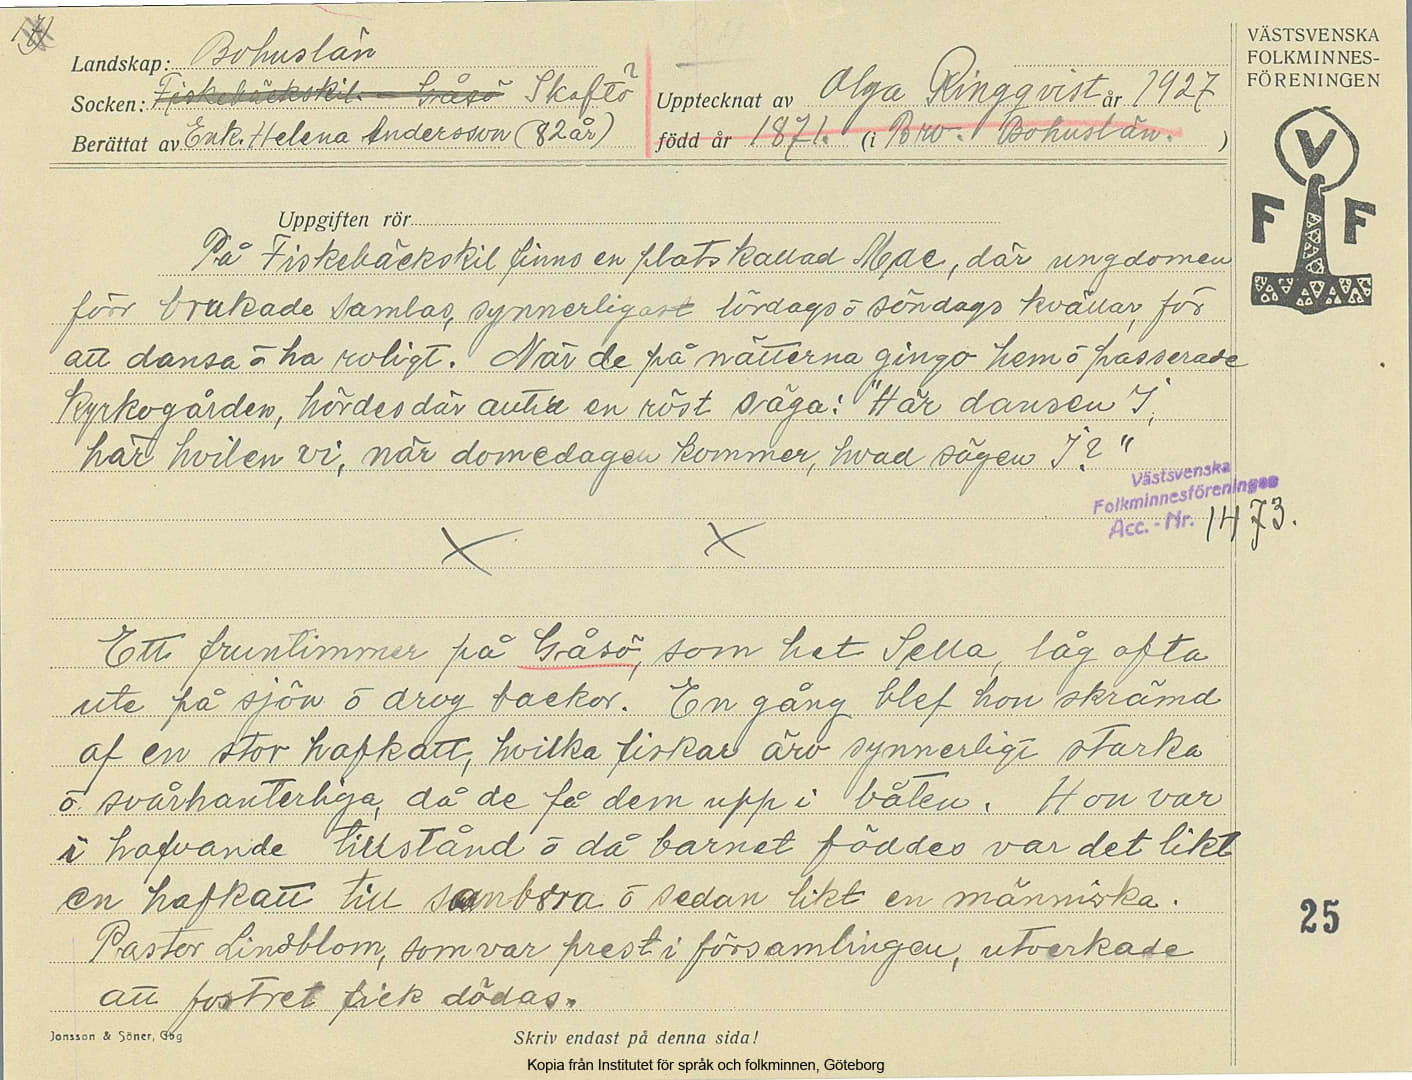 Landskap: Bohuslän
Socken: Fiskebäckskil. Gåsö Skaftö?
Berättat av Enk. Helena Andersson (82 år)
Upptecknat av Olga Ringqvist år 1927
född år 1871. (i Bro. Bohuslän. )
VÄSTSVENSKA
FOLKMINNES-
FÖRENINGEN
V
F F
Uppgiften rör
På Fiskebäckskil finns en plats kallad Mae, där ungdomen
förr brukade samlas, synnerligast lördags o söndags kvällar, för
att dansa o ha roligt. När de på nätterna gingo hem o passerade
Kyrkogården, hördes där en röst säga: "Här dansen I,
här hvilen vi, när domedagen kommer, hvad sägen I?"
Västsvenska
Folkminnesföreningen
Acc. - Nr. 1473.
Ett fruntimmer på Gåsö, som het Sella, låg ofta
ute på sjön o drog backor. En gång blef hon skrämd
af en stor hafkatt, hvilka fiskar äro synnerligt starka
o svårhanterliga, då de få dem upp i båten. Hon var
i hafvande tillstånd o då barnet föddes var det likt
en hafkatt till o sedan likt en människa.
Pastor Lindblom, som var prest i församlingen, utverkade
att fostret fick dödas.
25
Jonsson & Söner, Gbg
Skriv endast på denna sida!
Kopia från Institutet för språk och folkminnen, Göteborg